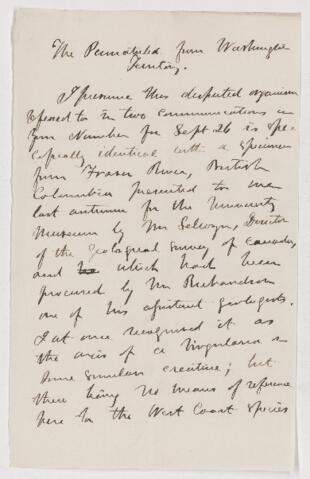 The Pennatulid from Washington
Territory.
I presume the disputed organism
referred to in two communications in
your Number for Sept 26 is spe-
cifically identical with a specimen
from Fraser River, British
Columbia presented to me
last autumn for the University
Museum by Mr Selwyn, Director
of the Geological Survey of Canada,
and which had been
procured by Mr Richardson
one of his assistant geologists.
I at once recognised it as
the axis of a Virgularia or
some similar creature; but
there being no means of reference
here to the West Coast species